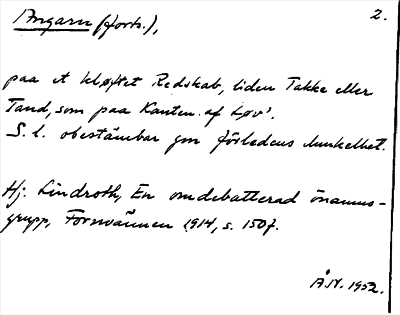 Angarn (forts.), 2.
paa et kløftet Redskab, liden Takke eller
Tand, som paa Kanten af Løv'.
S. l. obestämbar gm förledens dunkelhet.
Hj. Lindroth, En omdebatterad önamns-
grupp, Fornvännen 1914, s. 150f.
ÅN. 1952.